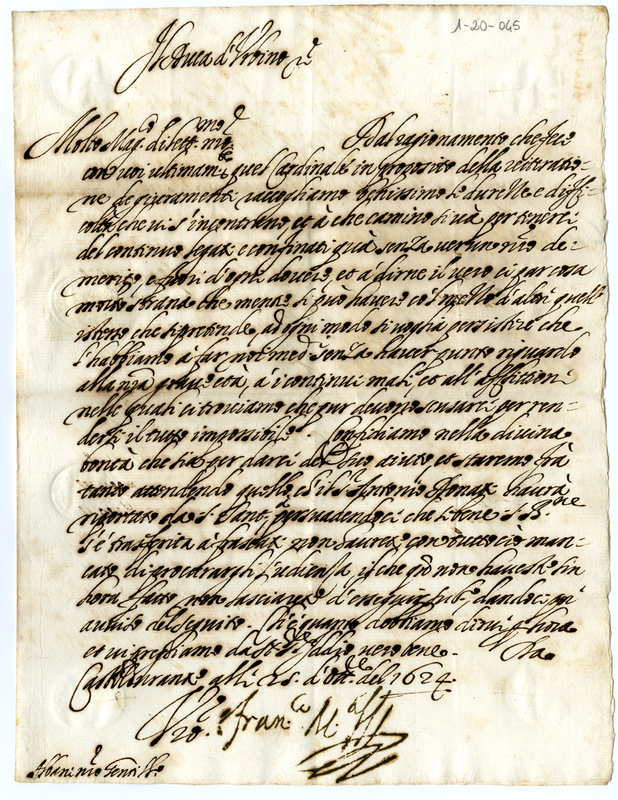 1-20-045
Il Duca d'Urbino etc.
Molto Mag.co dilett.mo n.ro Dal ragionamento che fece
con voi ultimam.te quel Cardinale in proposito della reiteratio=
ne de giuramenti raccogliamo benissimo le durezze e diffi=
coltà che vi s'incontrano, et à che camino si và per tenerci
del continuo legati e confinati quà senza verun n.ro de=
merito, e fuori d'ogni dovere, et a dirne il vero ci par cosa
molto strana che mentre si può havere co'l mezzo d'altri quell'
istesso che si pretende, ad ogni modo si voglia persistere che
l'habbiamo à far noi med.mi senza haver punto riguardo
alla n.ra grave età, à i continui mali, et all'afflittioni
nelle quali ci troviamo che pur devono scusarci per ren=
derci il tutto impossibile. Confidiamo nella divina
bontà che sia per darci del suo aiuto, et staremo frà
tanto attendendo quello, ch'il S.r Antonio Donati haurà
riportato da S. Sant.à persuadendoci che se bene S. B.ne
s'è trasferita à Frascati non saurete con tutto ciò man=
cato di procurargli l'udienza, il che quando non haveste sin
hora fatto non lasciarete d'eseguir sub.o dandoci poi
avviso del seguito. Ch'è quanto dobbiamo dirvi p hora
et vi preghiamo da Dio S.r N.ro vero bene. Da
Castel Durante alli 25. d'Ott.re del 1624.
V.ro Fran.co M.a